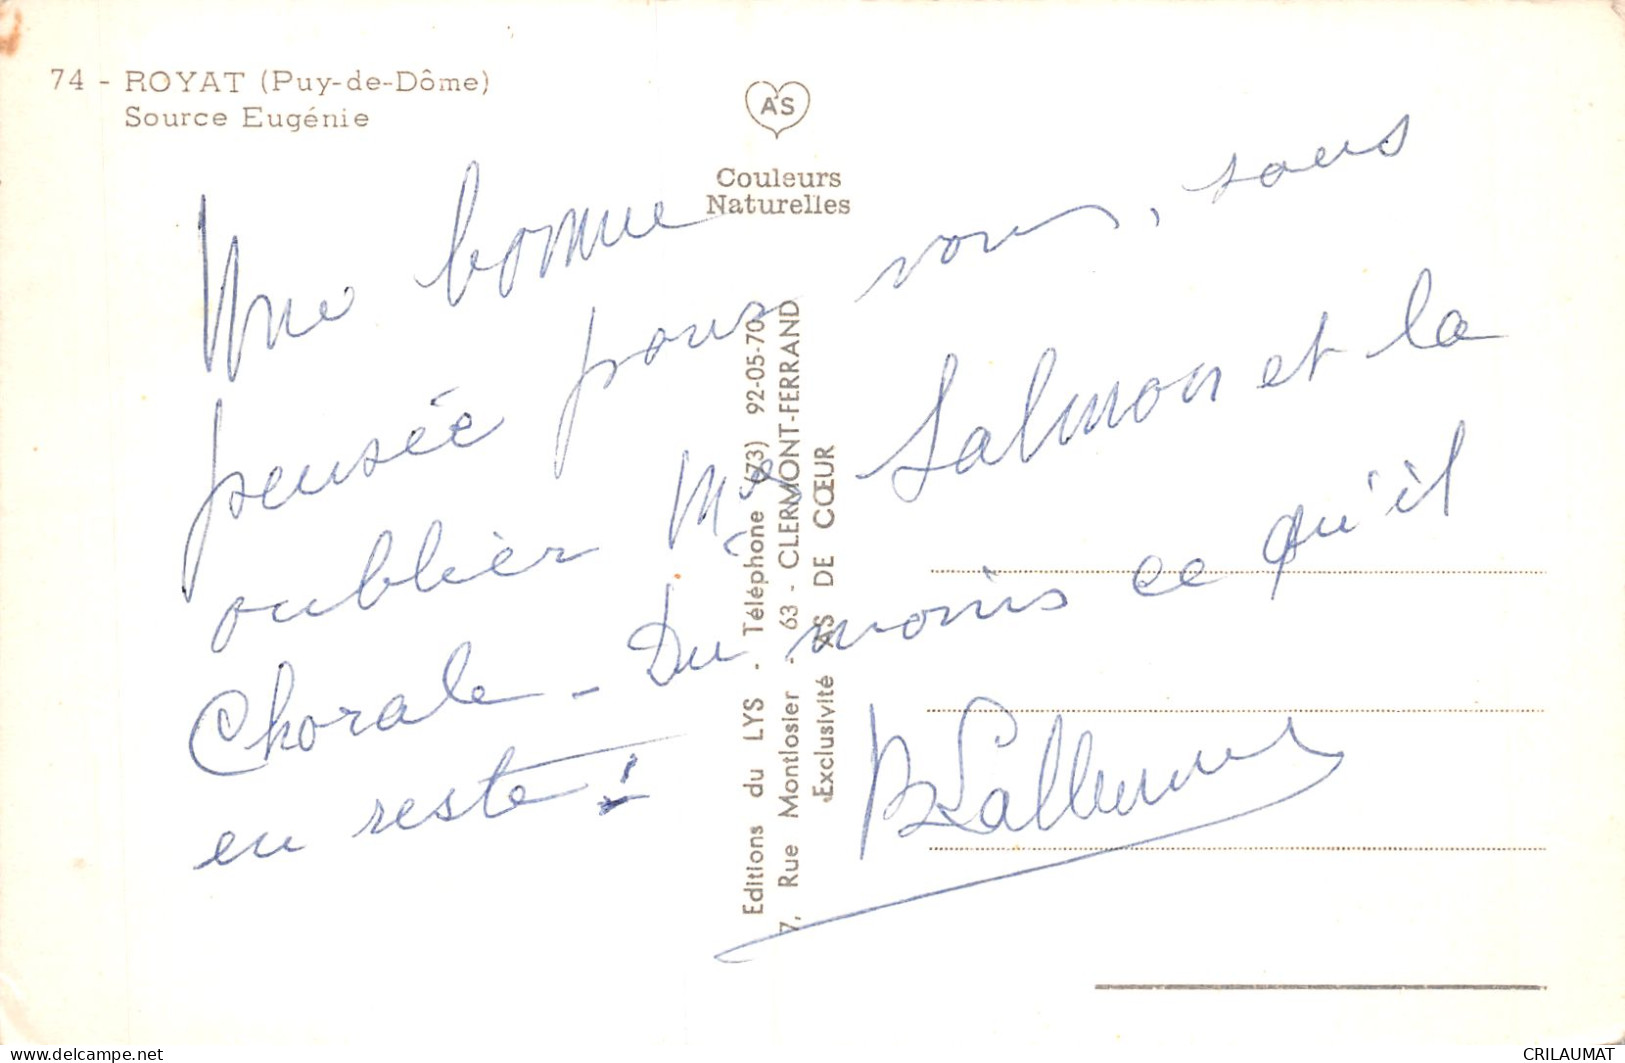 74 - ROYAT (Puy-de-Dôme)
Source Eugénie
A'S
Couleurs
Naturelles
Une bonne
pensée pour vous, sans
oublier Me Salmon et la
Chorale - Du moins ce qu'il
en reste !
B Lallemand
Editions du LYS - Téléphone (73) 92-05-70
7, Rue Montlosier - 63 - CLERMONT-FERRAND
Exclusivité AS DE CŒUR
delcampe.net
CRILAUMAT